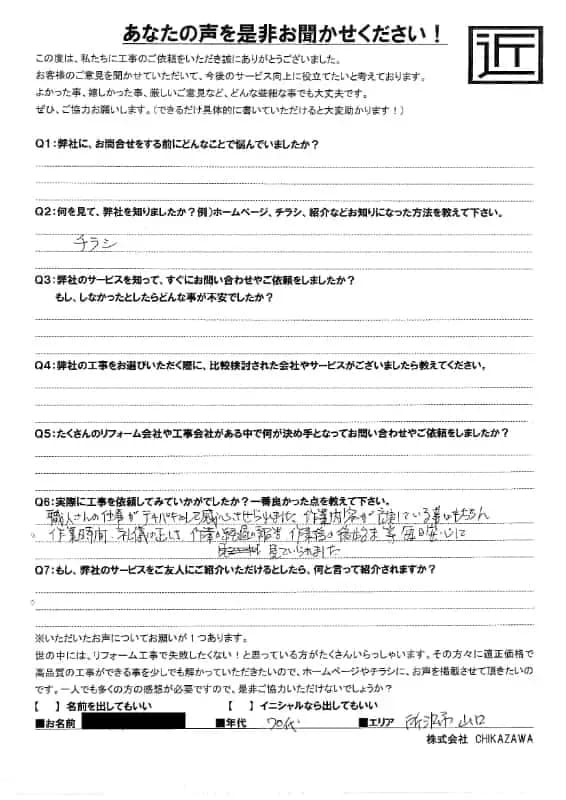 あなたの声を是非お聞かせください!
近
この度は、私たちに工事のご依頼をいただき誠にありがとうございました。
お客様のご意見を聞かせていただいて、今後のサービス向上に役立てたいと考えております。
よかった事、嬉しかった事、厳しいご意見など、どんな些細な事でも大丈夫です。
ぜひ、ご協力お願いします。(できるだけ具体的に書いていただけると大変助かります!)
Q1:弊社に、お問合せをする前にどんなことで悩んでいましたか?
Q2:何を見て、弊社を知りましたか?例)ホームページ、チラシ、紹介などお知りになった方法を教えて下さい。
チラシ
Q3:弊社のサービスを知って、すぐにお問い合わせやご依頼をしましたか?
もし、しなかったとしたらどんな事が不安でしたか?
Q4:弊社の工事をお選びいただく際に、比較検討された会社やサービスがございましたら教えてください。
Q5:たくさんのリフォーム会社や工事会社がある中で何が決め手となってお問い合わせやご依頼をしましたか?
Q6:実際に工事を依頼してみていかがでしたか?一番良かった点を教えて下さい。
職人さんの仕事がテキパキとして感心させられました 作業内容が している事はもちろん
作業時間 礼儀正しく 作業の経過の報告 作業后の後始末 等 毎日安心に
見ていられました
Q7:もし、弊社のサービスをご友人にご紹介いただけるとしたら、何と言って紹介されますか?
※いただいたお声についてお願いが1つあります。
世の中には、リフォーム工事で失敗したくない!と思っている方がたくさんいらっしゃいます。その方々に適正価格で
高品質の工事ができる事を少しでも解かっていただきたいので、ホームページやチラシに、お声を掲載させて頂きたいの
です。一人でも多くの方の感想が必要ですので、是非ご協力いただけないでしょうか?
【 】名前を出してもいい 【 】イニシャルなら出してもいい
■お名前 ■年代 70代 ■エリア 所沢市山口
株式会社 CHIKAZAWA